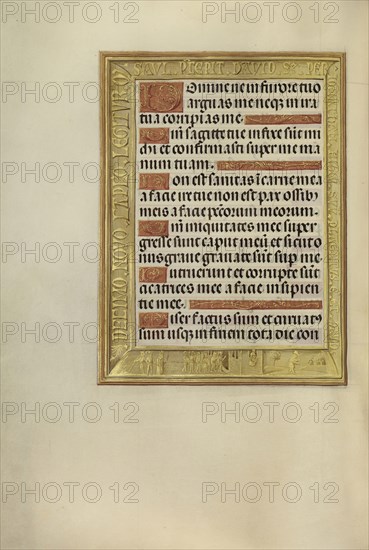 SAVL PEGRIT DAVID SE PER
Domine ne in furore tuo
arguas me neqz in ira
tua corripias me.
Qm sagitte tue infixe sūt mi
chi et confirmasti super me ma
num tuam.
Non est sanitas ī carne mea
a facie ire tue non est pax ossibꝰ
meis a facie pctorum meorum.
Qm iniquitates mee super
gresse sunt caput meū et sicut o
nus graue grauate sūt sup me.
Putruerunt et corrupte sūt
cicatrices mee a facie insipien
tie mee.
Miser factus sum et curuatꝰ
sum usqz in finem tota die con
PHOTO 12
PHOTO 12
PHOTO 12
PHOTO 12
PHOTO 12
PHOTO 12
PHOTO 12
PHOTO 12
PHOTO 12
PHOTO 12